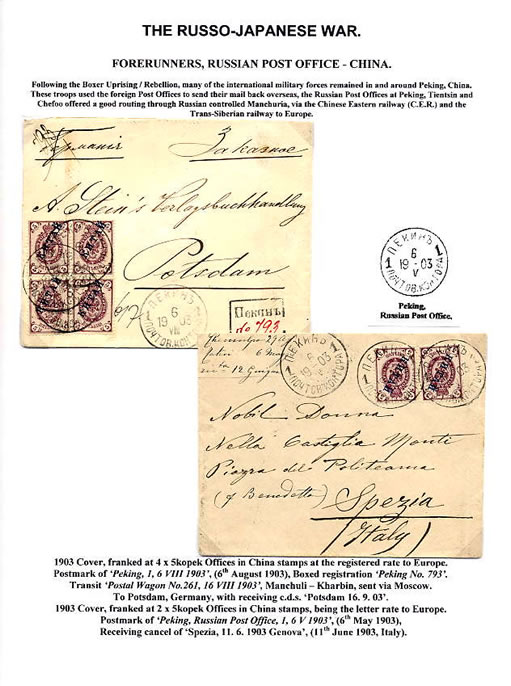 THE RUSSO-JAPANESE WAR.
FORERUNNERS, RUSSIAN POST OFFICE - CHINA.
Following the Boxer Uprising / Rebellion, many of the international military forces remained in and around Peking, China.
These troops used the foreign Post Offices to send their mail back overseas, the Russian Post Offices at Peking, Tientsin and
Chefoo offered a good routing through Russian controlled Manchuria, via the Chinese Eastern railway (C.E.R.) and the
Trans-Siberian railway to Europe.
Германія Заказное
A. Stein's Verlagsbuchhandlung
Potsdam
ПЕКИНЪ
6
19 03
VIII
1 ПОЧТОВ. КОНТОРА
Пекинъ
№ 793.
ПЕКИНЪ
1 6 1
19 03
V
ПОЧТОВ. КОНТОРА
Peking,
Russian Post Office.
ПЕКИНЪ
6
19 03
V
ПОЧТОВ. КОНТОРА
КИТАЙ
Nobil Donna
Nella Castiglia Monti
Piazza del Politeama
(f Benedetto) Spezia
(Italy)
1903 Cover, franked at 4 x 5kopek Offices in China stamps at the registered rate to Europe.
Postmark of 'Peking, 1, 6 VIII 1903', (6th August 1903), Boxed registration 'Peking No. 793'.
Transit 'Postal Wagon No.261, 16 VIII 1903', Manchuli – Kharbin, sent via Moscow.
To Potsdam, Germany, with receiving c.d.s. 'Potsdam 16. 9. 03'.
1903 Cover, franked at 2 x 5kopek Offices in China stamps, being the letter rate to Europe.
Postmark of 'Peking, Russian Post Office, 1, 6 V 1903', (6th May 1903),
Receiving cancel of 'Spezia, 11. 6. 1903 Genova', (11th June 1903, Italy).